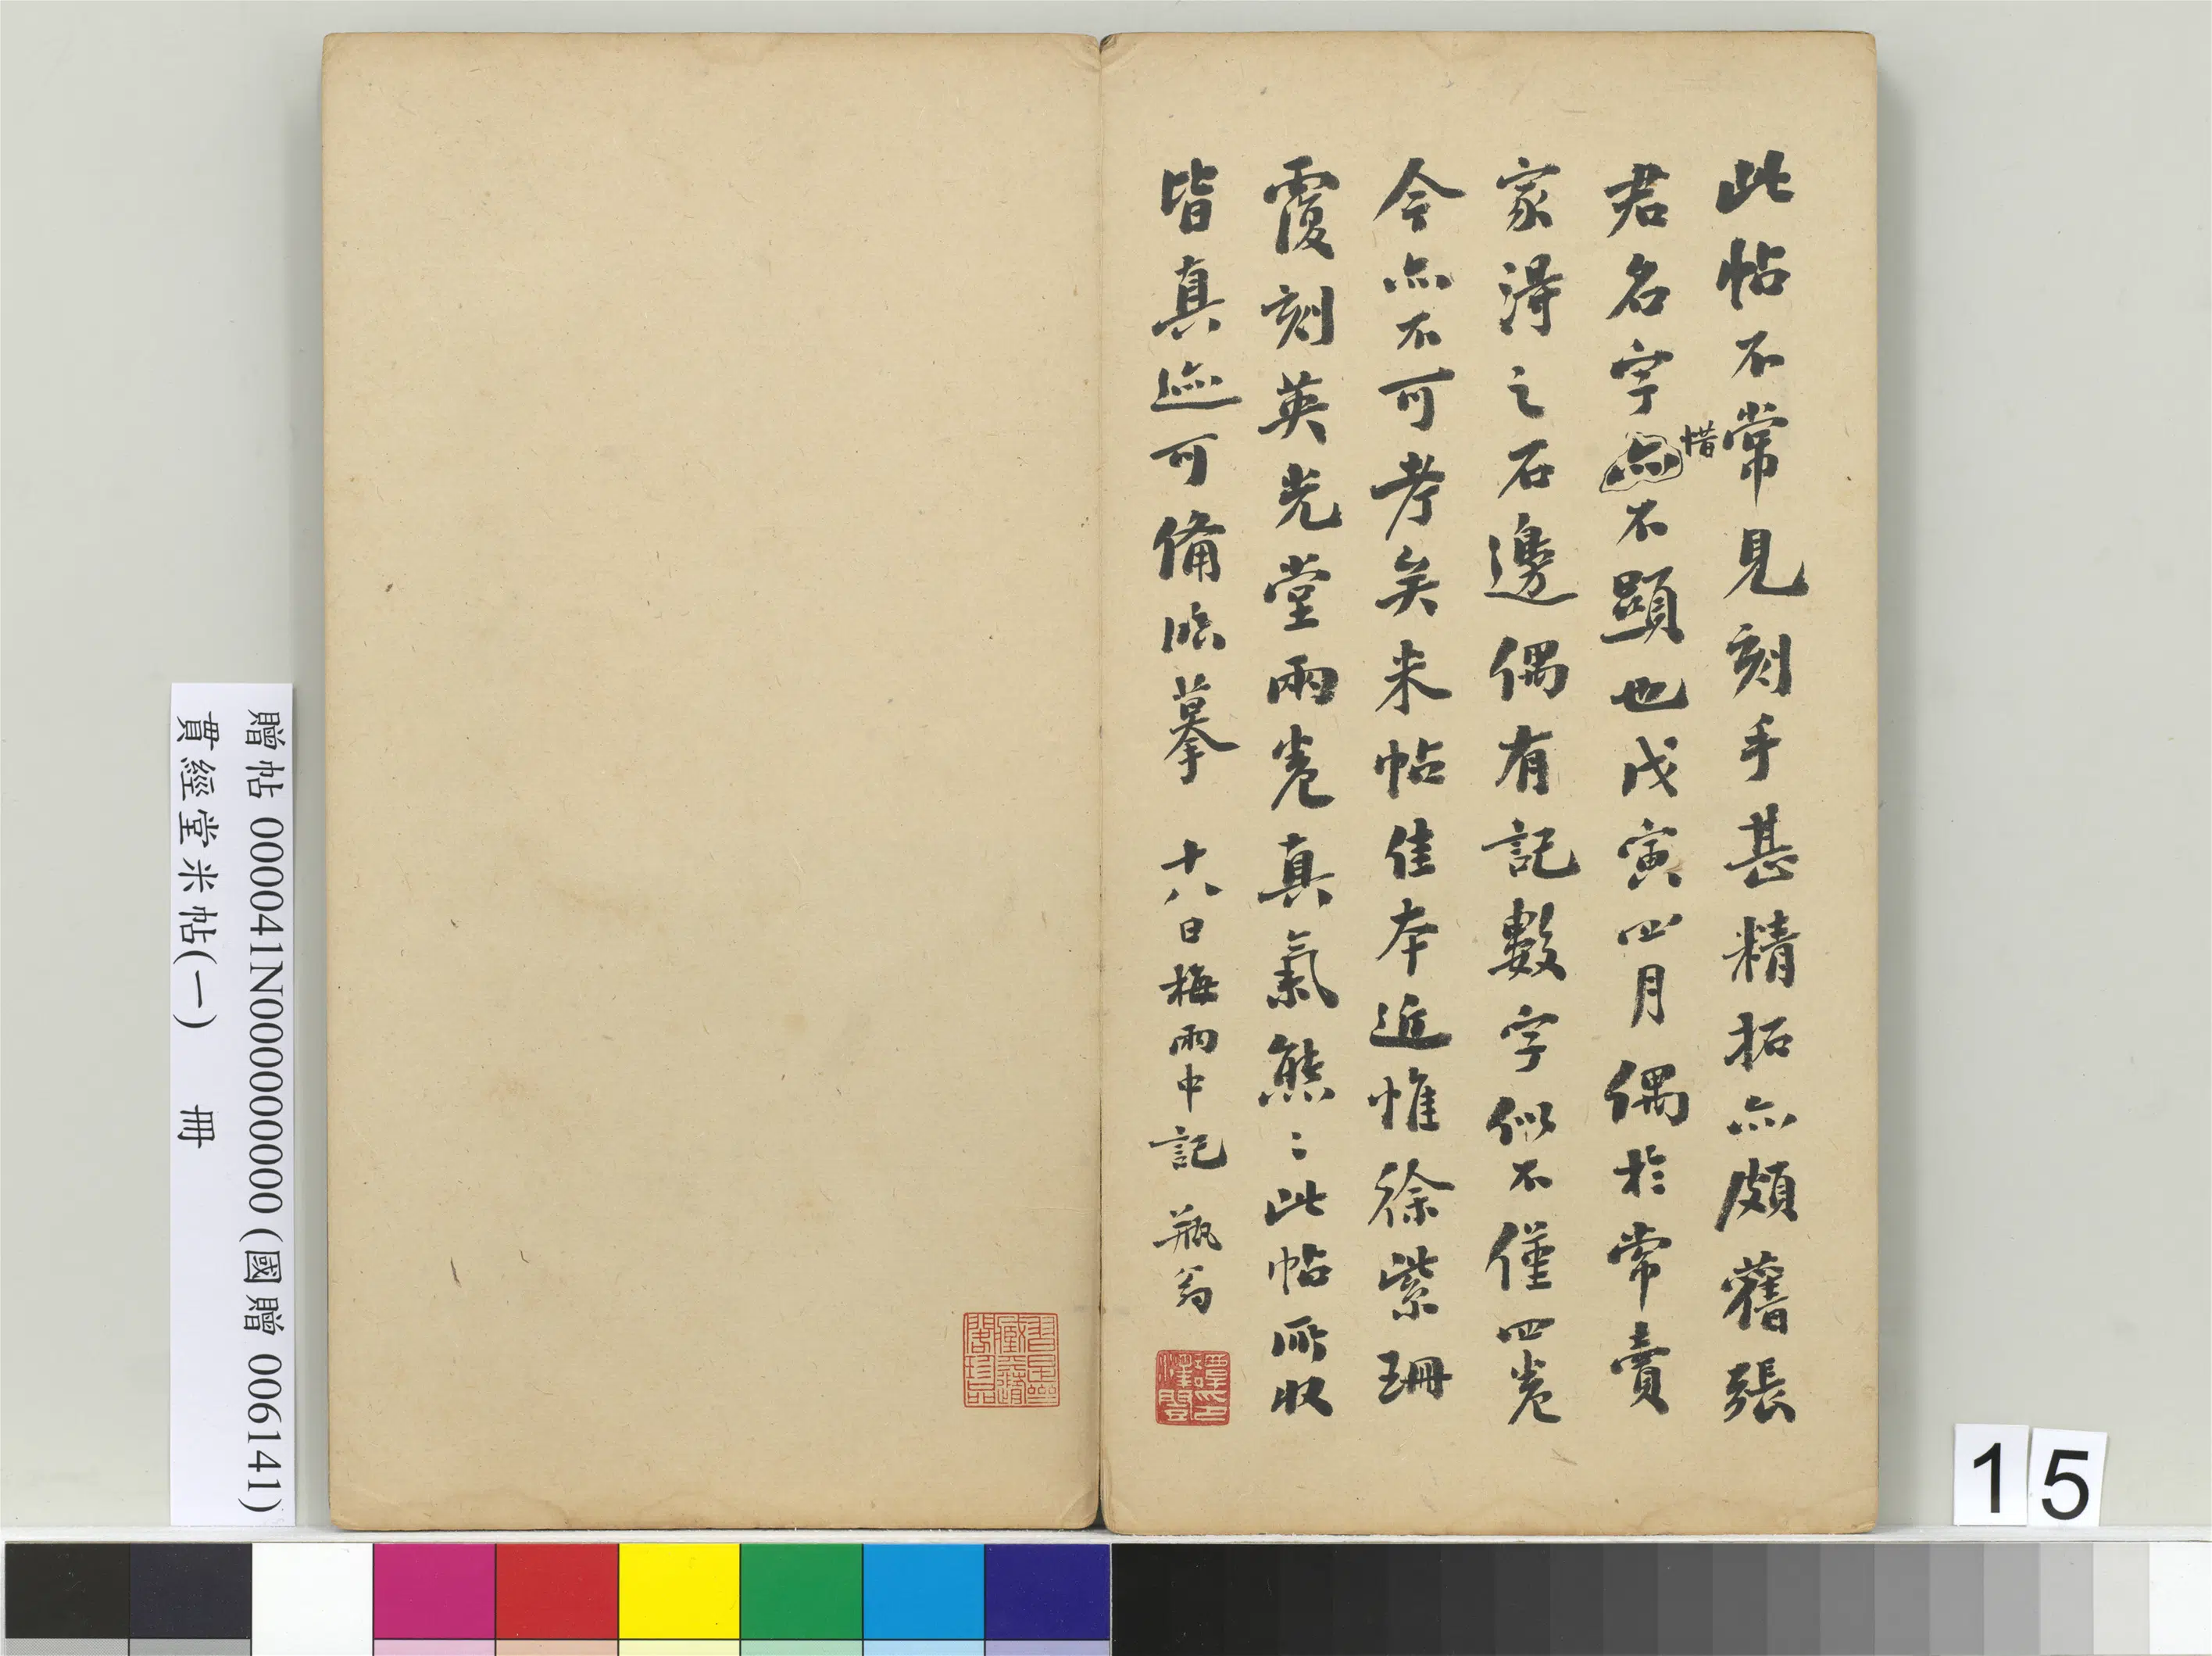 此帖不常見刻手甚精拓亦頗舊張
君名字亦不顯也戊寅四月偶於常賣
惜
家得之石邊偶有記數字似不僅四卷
今亦不可考矣米帖佳本近惟徐紫珊
覆刻英光堂兩卷真氣熊〻此帖所收
皆真迹可備臨摹 十八日梅雨中記 瓶翁
譚澤闓印
贈帖 000041N000000000 (國贈 006141)
貫經堂米帖(一) 冊
15